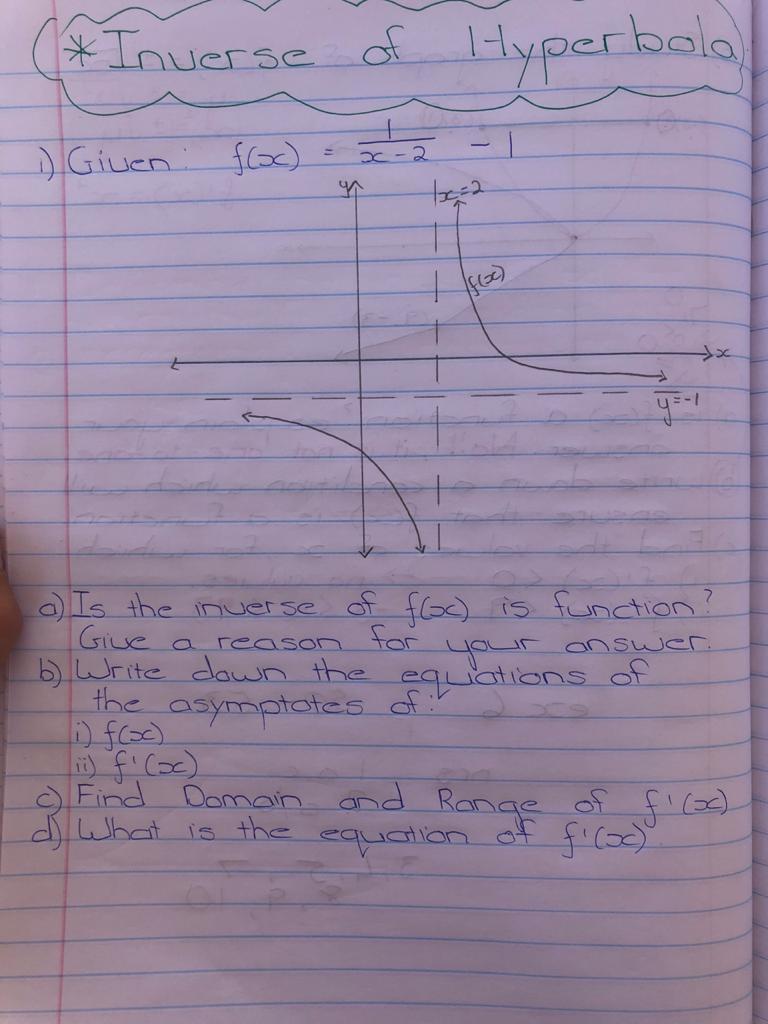 *Inverse of Hyperbola
1) Given: f(x) = 1/(x-2) - 1
y
x=2
f(x)
x
y=-1
a) Is the inverse of f(x) is function?
Give a reason for your answer.
b) Write down the equations of
the asymptotes of:
i) f(x)
ii) f'(x)
c) Find Domain and Range of f'(x)
d) What is the equation of f'(x)